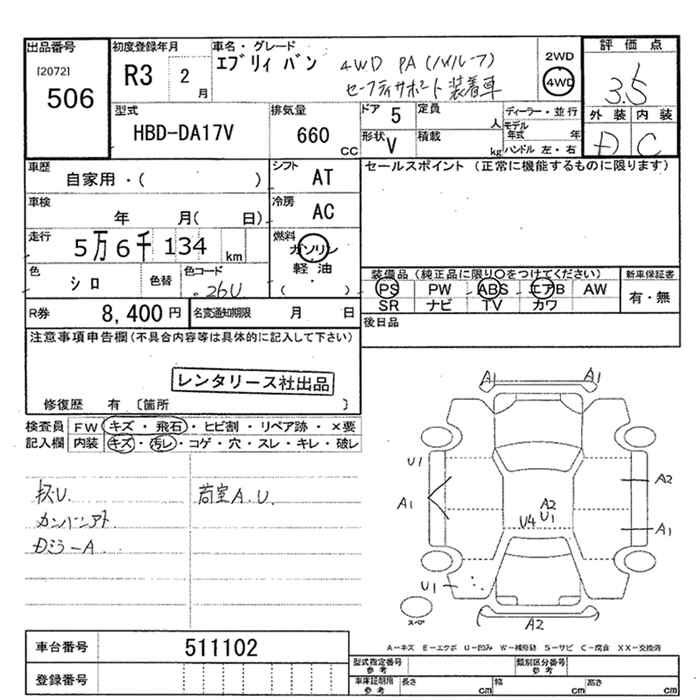 出品番号 初度登録年月 車名・グレード 評価点
[2072] 506 R3 2月 エブリイ バン 4WD PA(ハイルーフ) 2WD 4WD 3.5
セーフティサポート装着車
外装 内装
D C
型式 HBD-DA17V 排気量 660 CC ドア 5 定員 人 ディーラー・並行
形状 V 積載 kg モデル年式 年
ハンドル 左・右
車歴 自家用・( ) シフト AT セールスポイント (正常に機能するものに限ります)
車検 年 月( 日) 冷房 AC
走行 5万6千134 km 燃料 ガソリン 軽油 ( )
色 シロ 色替 色コード 26U 装備品(純正品に限り○をつけてください) 新車保証書
PS PW ABS エアB AW 有・無
SR ナビ TV カワ
R券 8,400円 名変通知期限 月 日 後日品
注意事項申告欄(不具合内容等は具体的に記入して下さい)
レンタリース社出品
修復歴 有 〔箇所 〕
検査員 FW キズ・飛石・ヒビ割・リペア跡・×要
記入欄 内装 キズ・汚レ・コゲ・穴・スレ・キレ・破レ
荷室A.U.
カンバンアト
DミラーA
A1 A1
U1 A2
A1 A2 U4 U1 A1
U1
スペア A2
A-キズ E-エクボ U-凹み W-補修跡 S-サビ C-腐食 XX-交換済
車台番号 511102
登録番号
型式指定番号 参考 類別区分番号 参考
車庫証明用 参考 長さ cm 幅 cm 高さ cm